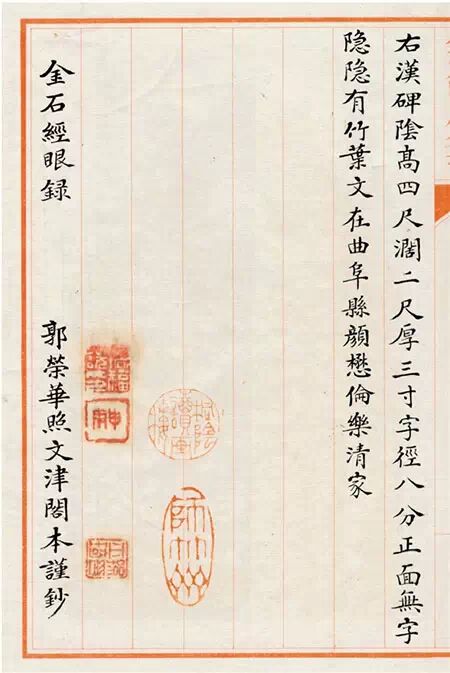 右漢碑陰高四尺濶二尺厚三寸字徑八分正面無字
隐隐有竹葉文在曲阜縣顔懋倫樂清家
金石經眼録
郭榮華照文津閣本謹鈔